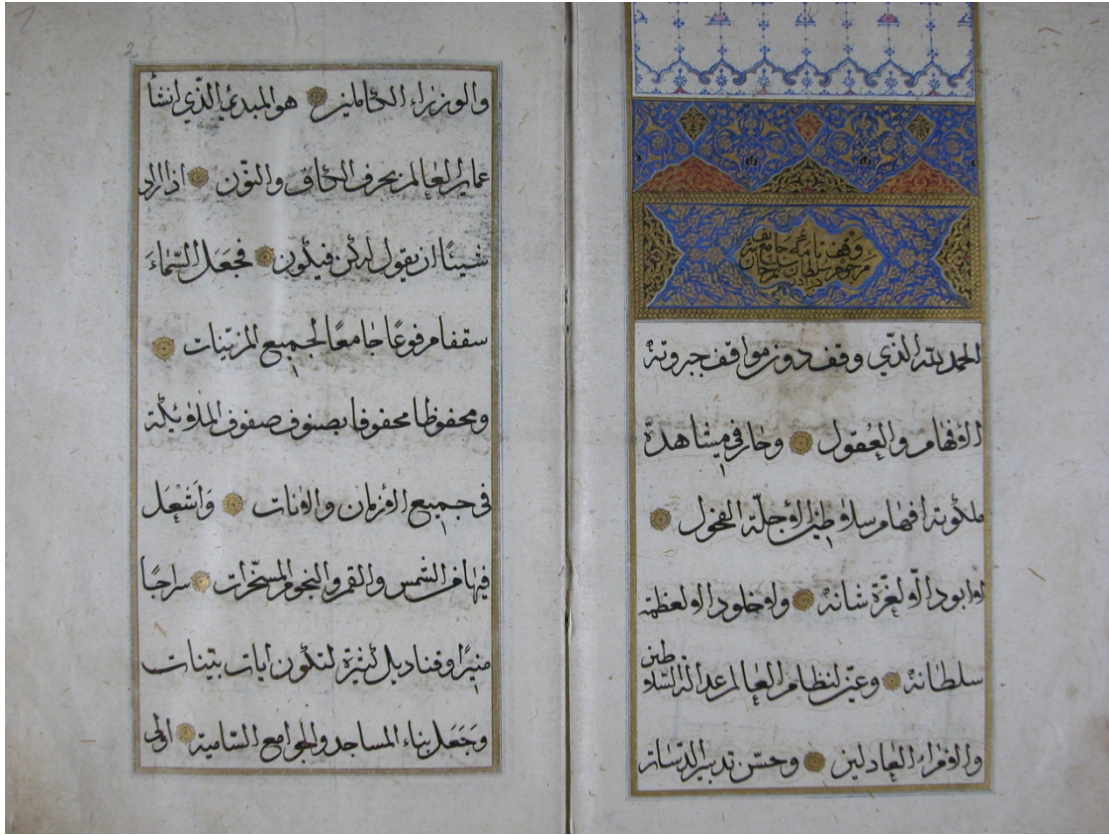 الحمد لله الذي وقف دون مواقف جبروته
الافهام والعقول وحار في مشاهدة
ملكوته افهام سلاطين الاجلة الفحول
شانه ولا خلود الا لعظمة
سلطانه وعين لنظام العالم عدالة السلاطين
والامراء العادلين وحسن تدبير الدساتر
2
والوزراء الكاملين هو المبدئ الذي انشأ
عماير العالم بحرف الكاف والنون اذا اراد
شيئا ان يقول له كن فيكون فجعل السماء
سقفا مرفوعا جامعا لجميع المزينات
ومحفوظا محفوفا بصنوف صفوف الملائكة
في جميع الازمان والانات واشعل
فيها من الشمس والقمر والنجوم المسخرات سراجا
منيرا وقناديل كثيرة لتكون ايات بينات
وجعل بناء المساجد والجوامع السامية اولى